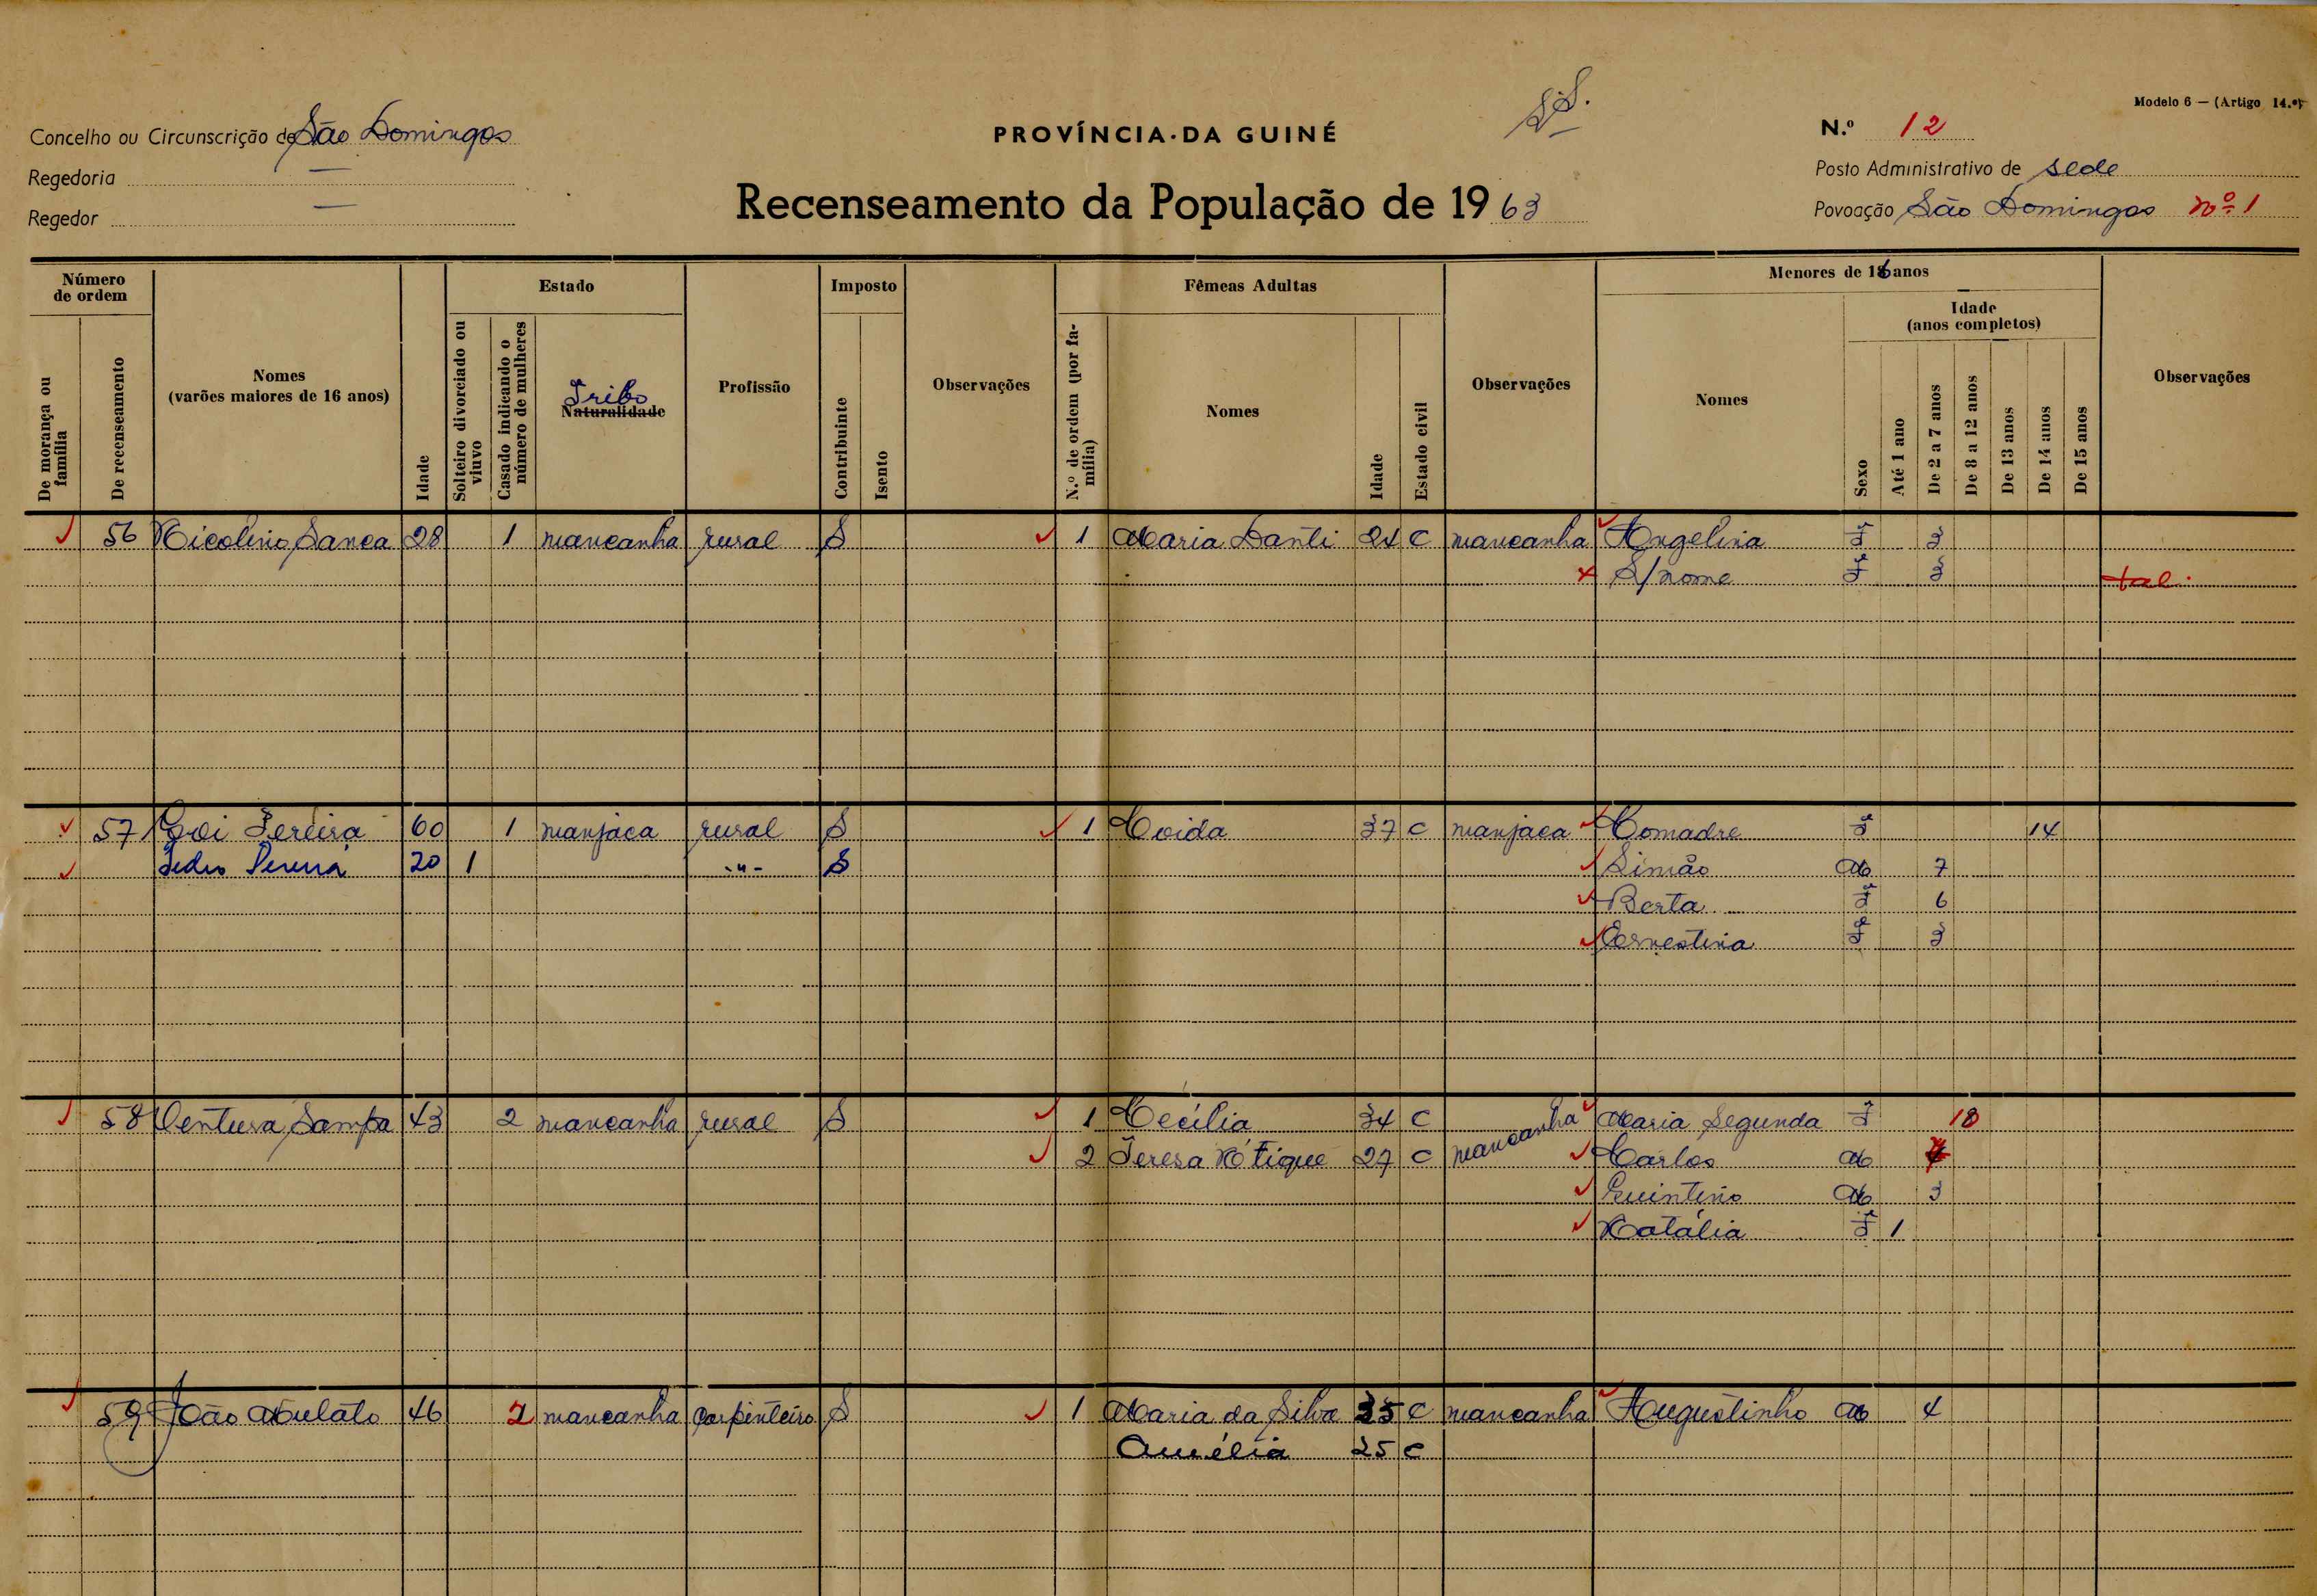 Modelo 6 — (Artigo 14.º)
Concelho ou Circunscrição de São Domingos
PROVÍNCIA DA GUINÉ
N.º 12
Regedoria —
Posto Administrativo de sede
Regedor —
Recenseamento da População de 1963
Povoação São Domingos nº 1
Número de ordem
De morança ou família
De recenseamento
Nomes
(varões maiores de 16 anos)
Idade
Estado
Solteiro divorciado ou viuvo
Casado indicando o número de mulheres
Tribo
Naturalidade
Profissão
Imposto
Contribuinte
Isento
Observações
Fêmeas Adultas
N.º de ordem (por família)
Nomes
Idade
Estado civil
Observações
Menores de 16 anos
Nomes
Sexo
Idade
(anos completos)
Até 1 ano
De 2 a 7 anos
De 8 a 12 anos
De 13 anos
De 14 anos
De 15 anos
Observações
56 Nicolino Sanca 28 1 mancanha rural S 1 Maria Danti 24 C mancanha Angelina F 3
S/nome F 3
57 Pereira 60 1 manjaca rural S 1 37 C manjaca Comadre F 14
Pedro Pereira 20 1 -"- S Simão M 7
Berta F 6
Ernestina F 3
58 Ventura Sampa 43 2 mancanha rural S 1 Cecília 34 C mancanha Maria Segunda F 18
2 Teresa N'Tique 27 C Carlos M
Quintino M 3
Natália F 1
59 João Mulato 46 2 mancanha carpinteiro S 1 Maria da Silva 35 C mancanha Augustinho M 4
Amélia 25 C